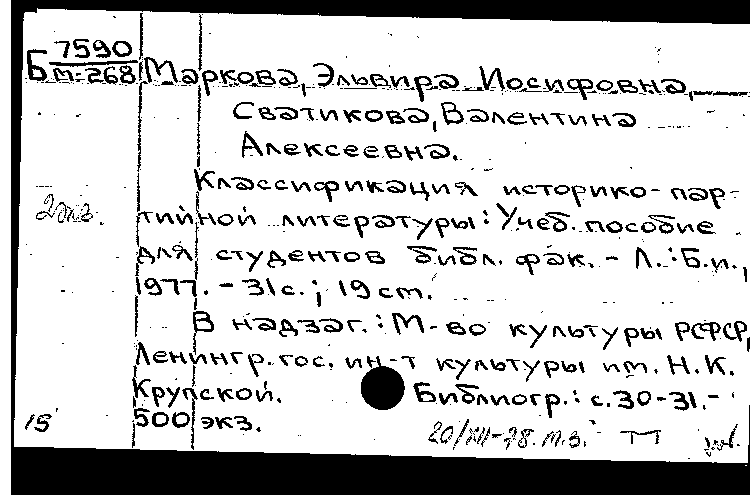 7590
Б м-268 Маркова, Эльвира Иосифовна,
Сватикова, Валентина
Алексеевна.
Классификация историко-пар-
2 экз. тийной литературы: Учеб. пособие
для студентов библ. фак. - Л.: Б.и.,
1977. - 31 с.; 19 cm.
В надзаг.: М-во культуры РСФСР,
Ленингр. гос. ин-т культуры им. Н.К.
Крупской. Библиогр.: с. 30-31. -
15 500 экз.
20/XII-78. м.з. ТТ